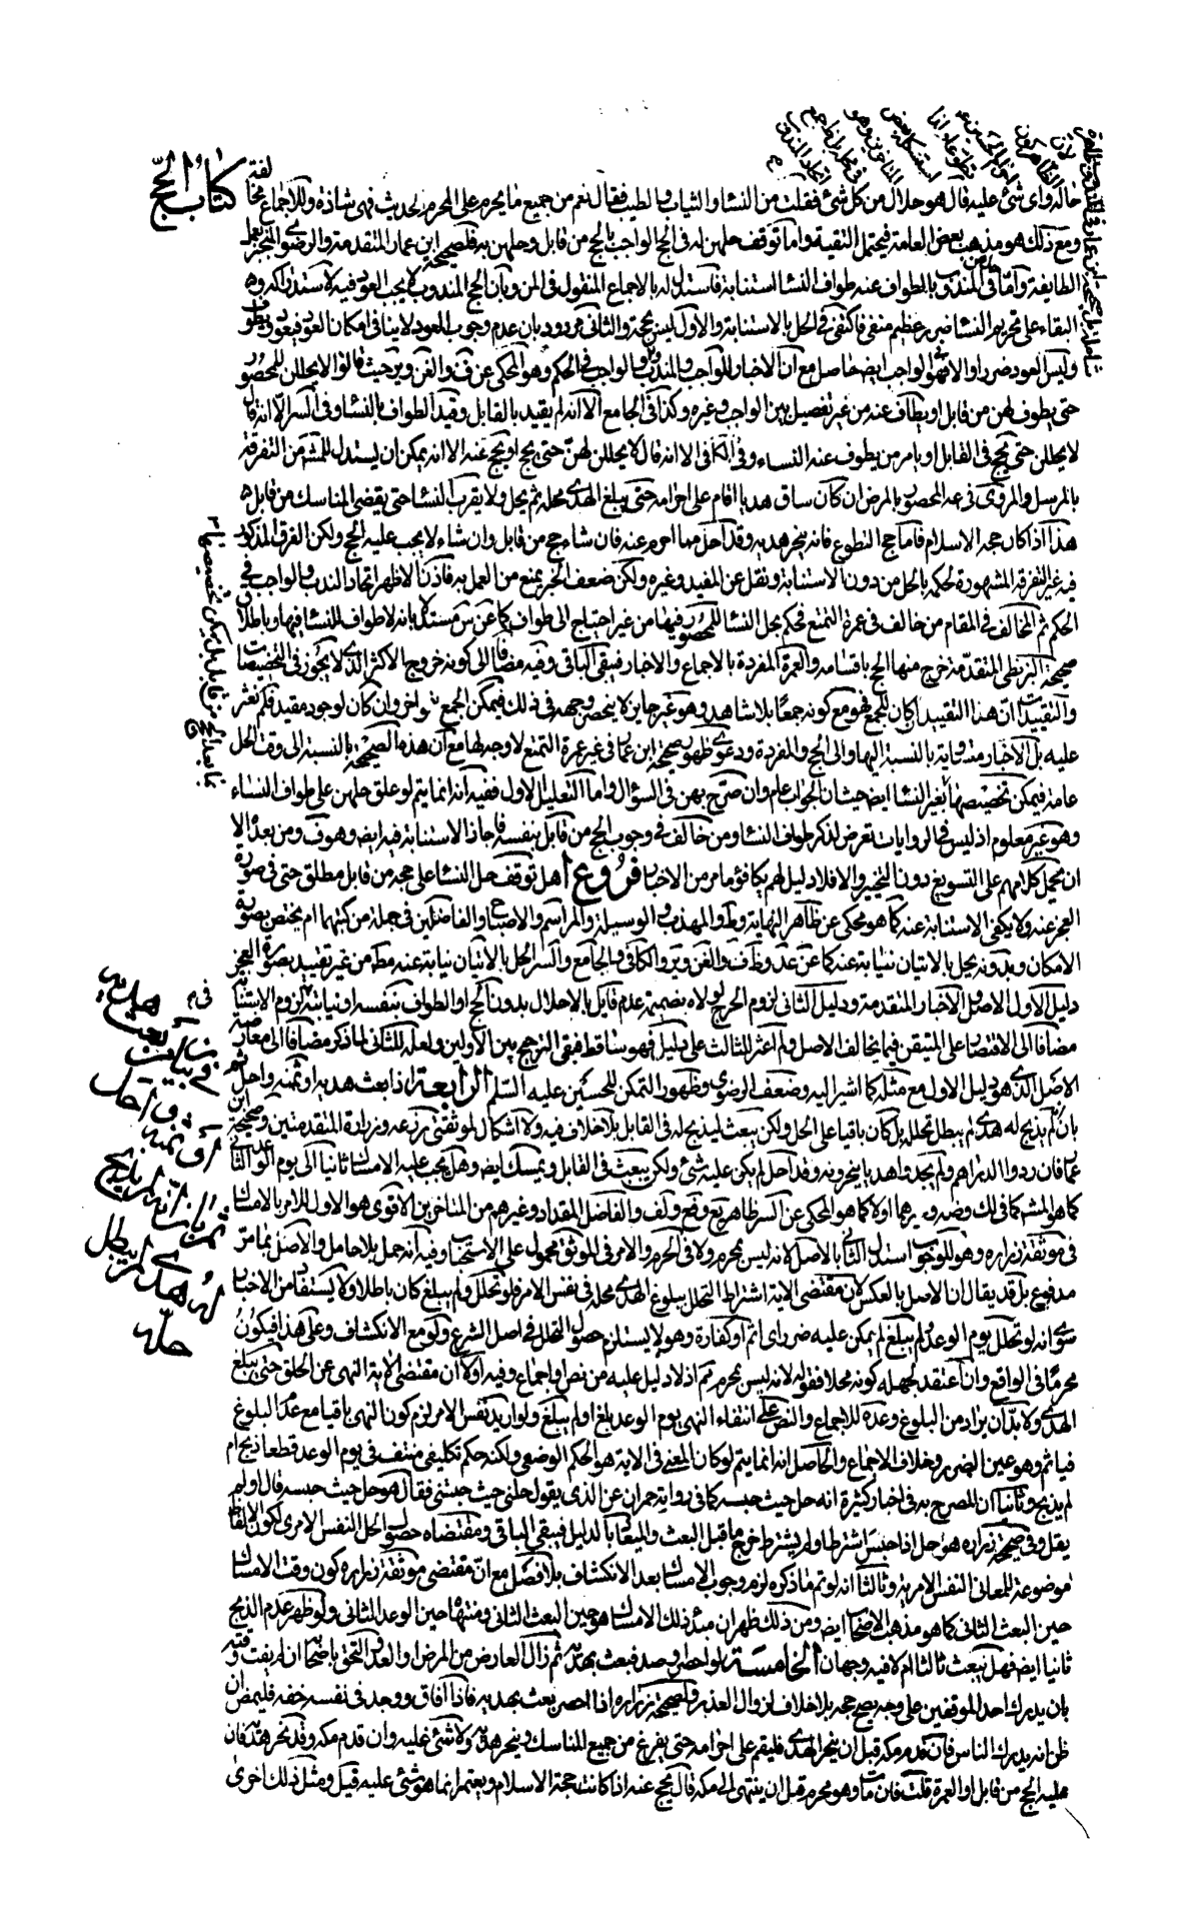 كتاب الحج
حاله وای شئ عليه قال هو حلال من كل شئ فقلت من النسا والثياب والطيب فقال نعم من جميع ما يحرم على المحرم الحديث فهی شاذة وللاجماع مخالفة
ومع ذلك هو مذهب بعض العامة فيحتمل التقية واما توقف حلهن له فی الحج الواجب بالحج من قابل وحلهن به فلصحيحة ابن عمار المتقدمة والرضوی المنجبر بعمل
الطايفة وامّا فی المندوب بالطواف عنه طواف النسا استنابة فاستدل له بالاجماع المنقول فی المن وبان الحج المندوب لا يجب العود فيه لاستدراكه و
البقاء على تحريم النسا ضرر عظيم منفی فاكتفی فی الحل بالاستنابة والاول ليس بحجة والثانی مردود بان عدم وجوب العود لا ينافی امكان العود فيعود يطوف
وليس العود ضررا والا فهو فی الواجب ايضا حاصل مع ان الاخبار للواجب والمندوب والواجب فی الحكم وهو المحكی عن ف والغن وير حيث قالوا لا يحللن للمحصور
حتى يطوف لهن من قابل او يطاف عنه من غير تفصيل بين الواجب وغيره وكذا فی الجامع الا انه لم يقيد بالقابل وقيد الطواف بالنسا وفی السر الا انه قال
لا يحللن حتى يحج فی القابل او يامر من يطوف عنه النساء وفی الكافی الا انه قال لا يحللن لهنّ حتى يحج او يحج عنه الا انه يمكن ان يستدل للمشهور من التفرقة
بالمرسل المروی فی عه المحصور بالمرض ان كان ساق هديا اقام على احرامه حتى يبلغ الهدی محله ثم يحل ولا يقرب النسا حتى يقضی المناسك من قابل
هذا اذا كان حجه الاسلام فاما حج التطوع فانه ينحر هديه وقد احل مما احرم عنه فان شاء حج من قابل وان شاء لا يجب عليه الحج ولكن الفرق المذكور
فيه غير التفرقة المشهورة لحكمه بالحل من دون الاستنابة ونقل عن المفيد وغيره ولكن ضعف الخبر يمنع من العمل به فاذن الاظهر اتحاد الندب والواجب فی
الحكم ثم المخالف فی المقام من خالف فی عمرة التمتع فحكم بحل النسا للمحصور فيها من غير احتياج الى طواف كما عن س مستدلا بانه لا طواف للنسا فيها وباطلاق
صحيحة البزنطی المتقدمة خرج منها الحج باقسامه والعمرة المفردة بالاجماع والاخبار فيبقى الباقی وفيه مضافا الى كونه خروج الاكثر الذی لا يجوز فی التخصيصات
والتقييدات ان هذا التقييد ان كان للجمع فهو مع كونه جمعا بلا شاهد وهو غير جايز لا ينحصر وجهه فی ذلك فيمكن الجمع بنحو اخر وان كان لوجود مقيد فلم نعثر
عليه بل الاخبار متساوية بالنسبة اليها والى الحج والمفردة ودعوی ظهور صحيحة ابن عمار فی غير عمرة التمتع لا وجه لها مع ان هذه الصحيحة بالنسبة الى وقت الحل
عامة فيمكن تخصيصها بغير النسا ايضا حيث ان الجواب عام وان صرح بهن فی السؤال واما التعليل الاول ففيه انه انما يتم لو علق حلهن على طواف النساء
وهو غير معلوم اذ ليس فی الروايات تعرض لذكر طواف النسا ومن خالف فی وجوب الحج من قابل بنفسه فاجاز الاستنابة فيه ايضا وهو ف ومن بعده الا
ان يحمل كلامهم على التسويغ دون التخيير والا فلا دليل لهم يكافؤ ما مر من الاخبار فروع ا هل توقف حل النسا على حجه من قابل مطلق حتى فی صورة
العجز عنه ولا يكفی الاستنابة عنه كما هو محكی عن ظاهر النهاية وط والمهذب والوسيلة والمراسم والاصباح والفاضلين فی جملة من كتبهما ام يختص بصورة
الامكان وبدونه يحل بالاتيان نيابة عنه كما عن عد وظ ف والغن وير والكافی والجامع والسر الحل بالاتيان نيابة عنه مطلقا من غير تقييد بصورة العجز
دليل الاول الاصل والاخبار المتقدمة ودليل الثانی لزوم الحرج لولاه بضميمة عدم قايل بالاحلال بدون الحج او الطواف بنفسه او نيابته لزوم الاستنابة
مضافا الى الاقتصار على المتيقن فيما يخالف الاصل ولم اعثر للثالث على دليل فهو ساقط فبقی الترجيح بين الاولين ولعله للثانی لما ذكر مضافا الى معارضة
الاصل الذی هو دليل الاول مع مثله كما اشير اليه وضعف الرضوی وظهور التمكن للحسين عليه السلم الرابعة اذا بعث هديه او ثمنه واحل ثم
بان لم يذبح له هدی لم يبطل تحلله بل كان باقيا على الحل ولكن يبعث ليذبح له فی القابل بلا خلاف فيه ولا اشكال لموثقتی زرعه وزرارة المتقدمتين وصحيحة ابن
عمار فان ردوا الدراهم ولم يجدوا هديا ينحرونه وقد احل لم يكن عليه شئ ولكن يبعث فی القابل ويمسك ايضا وهل يجب عليه الامساك ثانيا الى يوم الوعد الثانی
كما هو المشهور كما فی لك وضه وغيرهما اولا كما هو المحكی عن السر ظاهر يع وفع ولف والفاضل المقداد وغيرهم من المتاخرين الاقوی هو الاول للامر بالامساك
فی موثقة زرارة وهو للوجوب استدل الثانی بالاصل لانه ليس بمحرم ولا فی الحرم والامر فی الموثق محمول على الاستحباب وفيه انه حمل بلا حامل والاصل بما مرّ
مدفوع بل قد يقال ان الاصل بالعكس لان مقتضی الاية اشتراط التحلل ببلوغ الهدی محله فی نفس الامر فلو تحلل ولم يبلغ كان باطلا ولا يستفاد من الاخبار
سوی انه لو تحلل يوم الوعد ولم يبلغ لم يكن عليه ضرر ای اثم او كفارة وهو لا يستلزم حصول التحلل فی اصل الشرع ولو مع الانكشاف وعلى هذا فيكون
محرما فی الواقع وان اعتقد لجهله كونه محلا فقوله لانه ليس بمحرم مم اذ لا دليل عليه من نص او اجماع وفيه اولا ان مقتضی الاية النهی عن الحلق حتى يبلغ
الهدی ولا بدّ ان يراد من البلوغ وعده للاجماع والنص على انتفاء النهی يوم الوعد بلغ او لم يبلغ ولو اريد نفس الامر لزم كون النهی باقيا مع عدم البلوغ
فياثم وهو عين الضرر وخلاف الاجماع والحاصل انه انما يتم لو كان المعنی فی الاية هو الحكم الوضعی ولكنه حكم تكليفی منتف فی يوم الوعد قطعا ذبح ام
لم يذبح وثانيا ان المصرح به فی اخبار كثيرة انه حل حيث حبسه كما فی رواية حمران عن الذی يقول حلنی حيث حبستنی فقال هو حل حيث حبسه قال او لم
يقل وفی صحيحة زرارة هو حل اذا حبس اشترط او لم يشترط خرج ما قبل البعث والميعاد بالدليل فيبقى الباقی ومقتضاه حصول الحل النفس الامری لكون الالفاظ
موضوعة للمعانی النفس الامرية وثالثا انه لو تم ما ذكره لزم وجوب الامساك بعد الانكشاف بلا فصل مع ان مقتضی موثقة زرارة كون وقت الامساك
حين البعث الثانی كما هو مذهب الاصحاب ايضا ومن ذلك ظهر ان مبدء ذلك الامساك هو حين البعث الثانی ومنتهاه حين الوعد الثانی ولو ظهر عدم الذبح
ثانيا ايضا فهل يبعث ثالثا ام لا فيه وجهان الخامسة لو احصر او صد فبعث بهديه ثم زال العارض من المرض او العدو التحق باصحابه ان لم يفت وقته
بان يدرك احد الموقفين على وجه يصح حجه بلا خلاف لزوال العذر ولصحيحة زرارة اذا احصر بعث بهديه فاذا افاق ووجد فی نفسه خفة فليمض ان
ظن انه يدرك الناس فان قدم مكة قبل ان ينحر الهدی فليقم على احرامه حتى يفرغ من جميع المناسك وينحر هديه ولا شئ عليه وان قدم مكة وقد نحر هديه فان
عليه الحج من قابل او العمرة قلت فان مات وهو محرم قبل ان ينتهی الى مكة قال يحج عنه اذا كانت حجة الاسلام ويعتمر انما هو شئ عليه قيل ومثل ذلك اخری